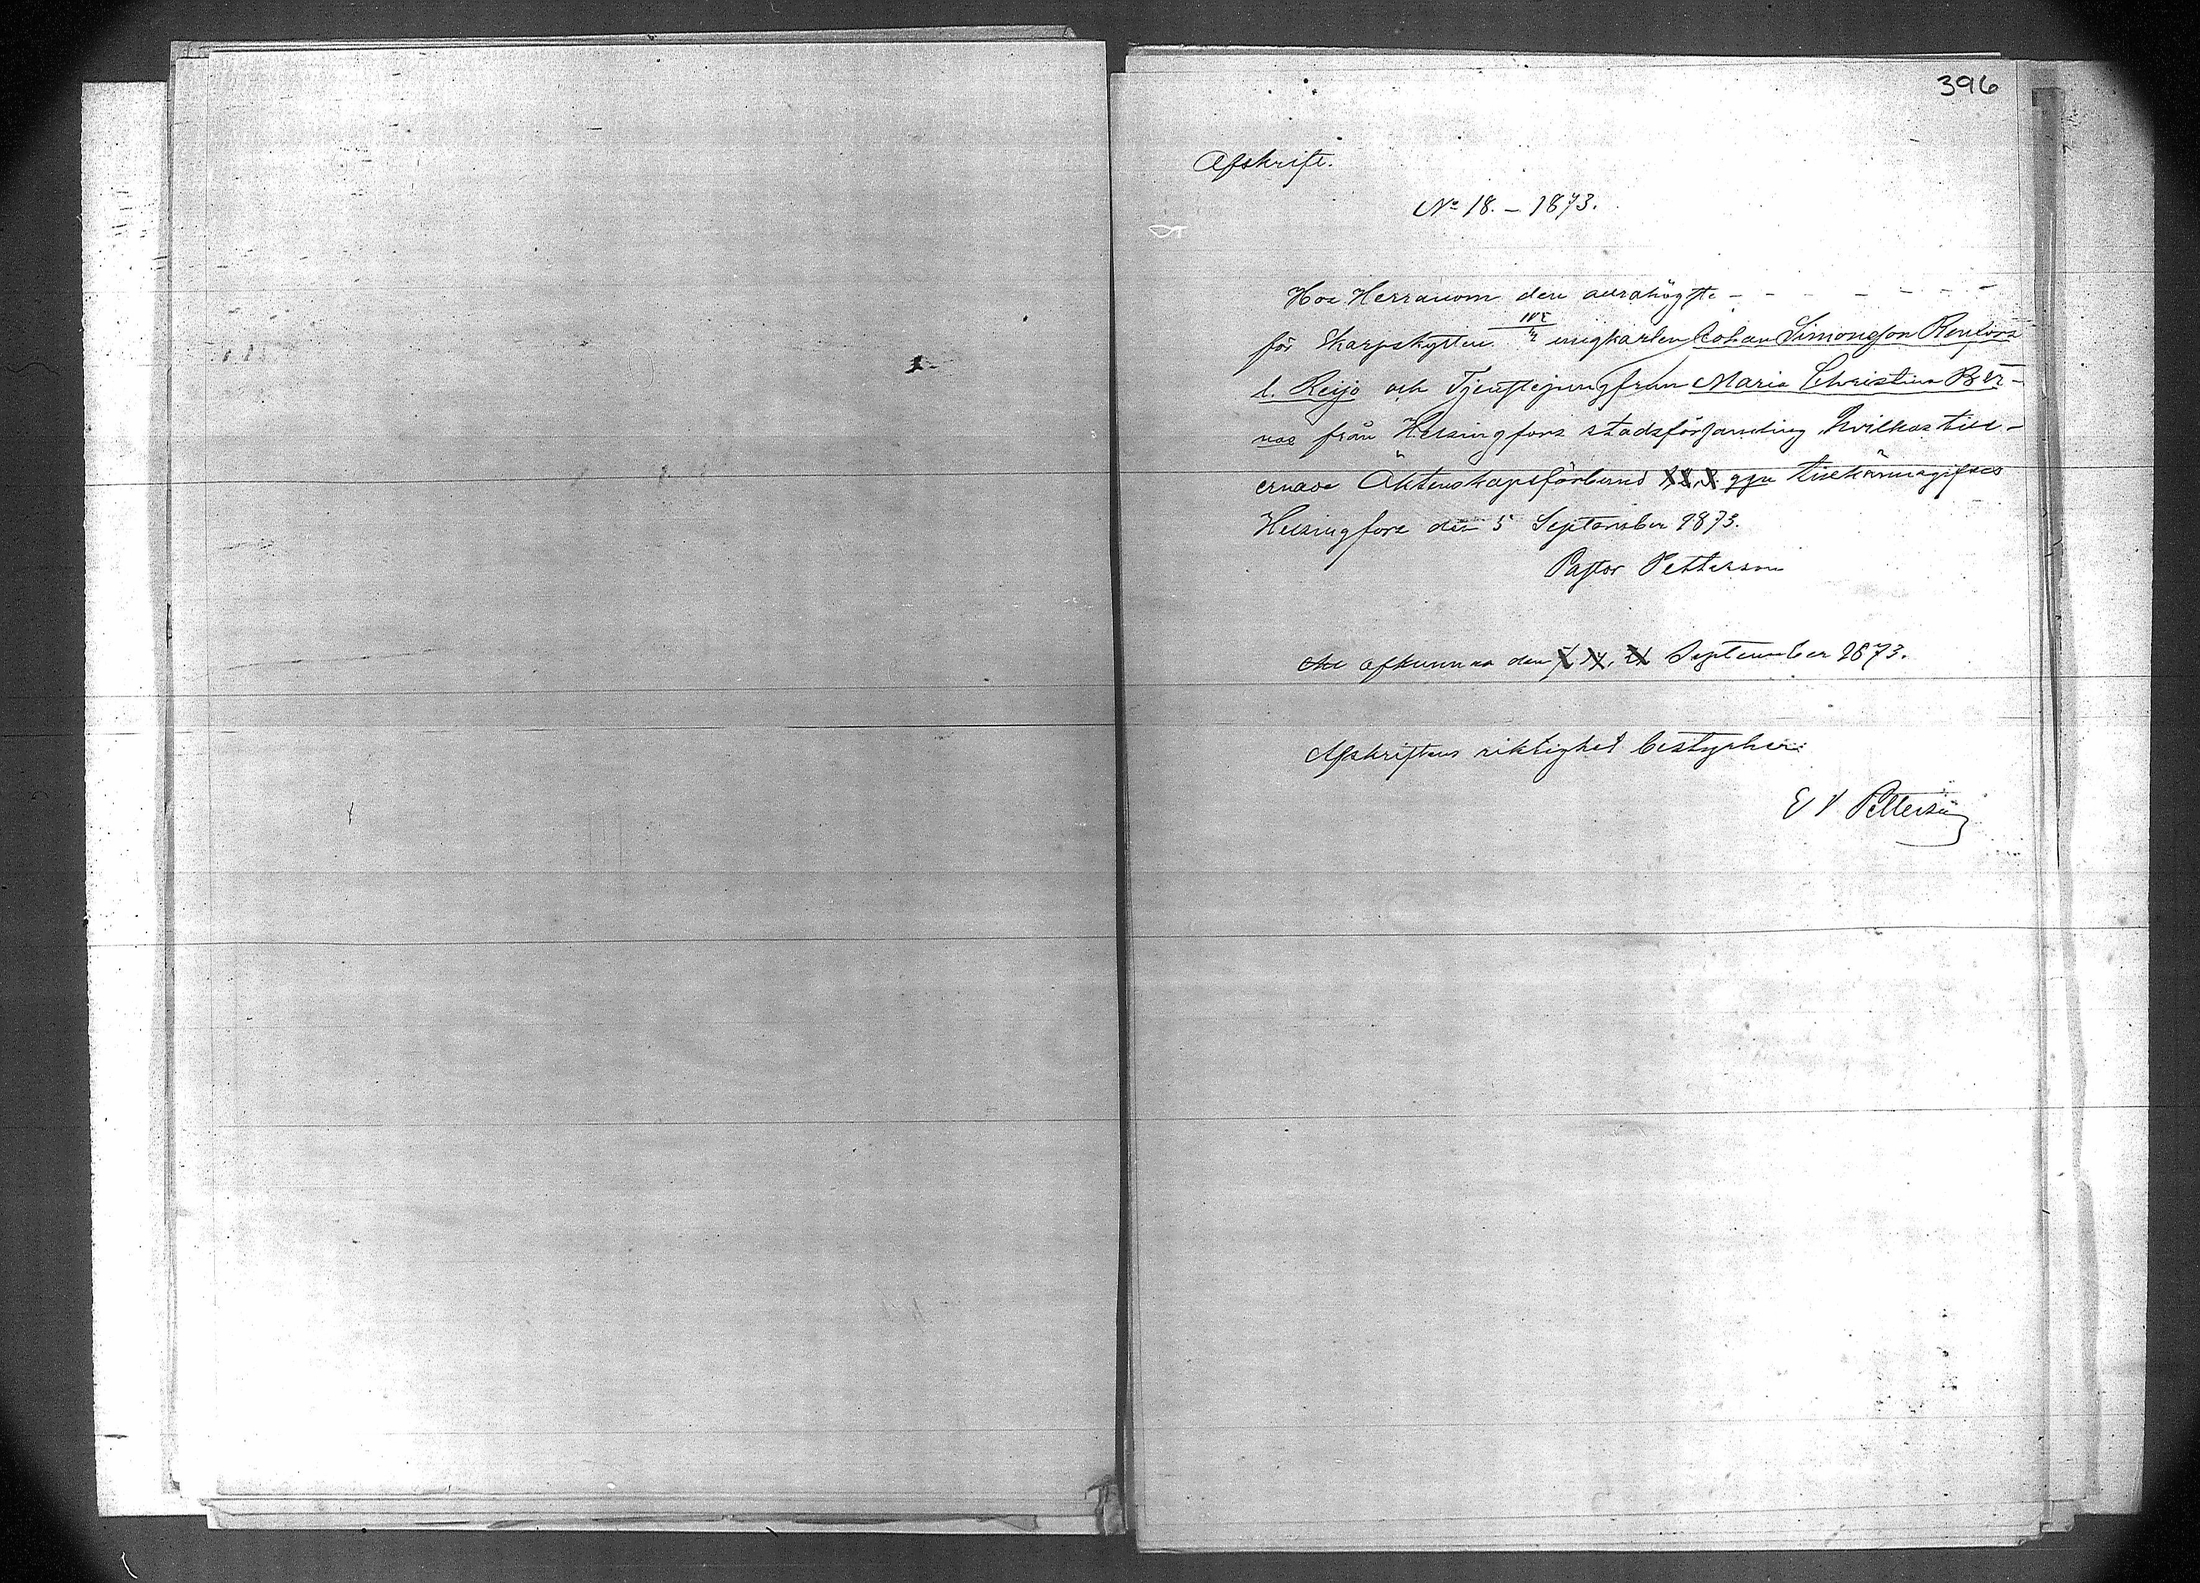 396
Afskrift.
No 18. – 1873.
Hos Herranom den allrahögste
för Skarpskytten ungkarlen Johan Simonsson Renfors
l. Reijo och Tjenstejungfrun Maria Christina Ber-
nas från Helsingfors stadsförsamling hvilkas till-
ernade Äktenskapsförbund ggn tillkännagifves
Helsingfors den 5 September 1873.
Pastor Petterson
Att afkunnas den September 1873.
Afskriftens riktighet bestyrker:
E V Petterson